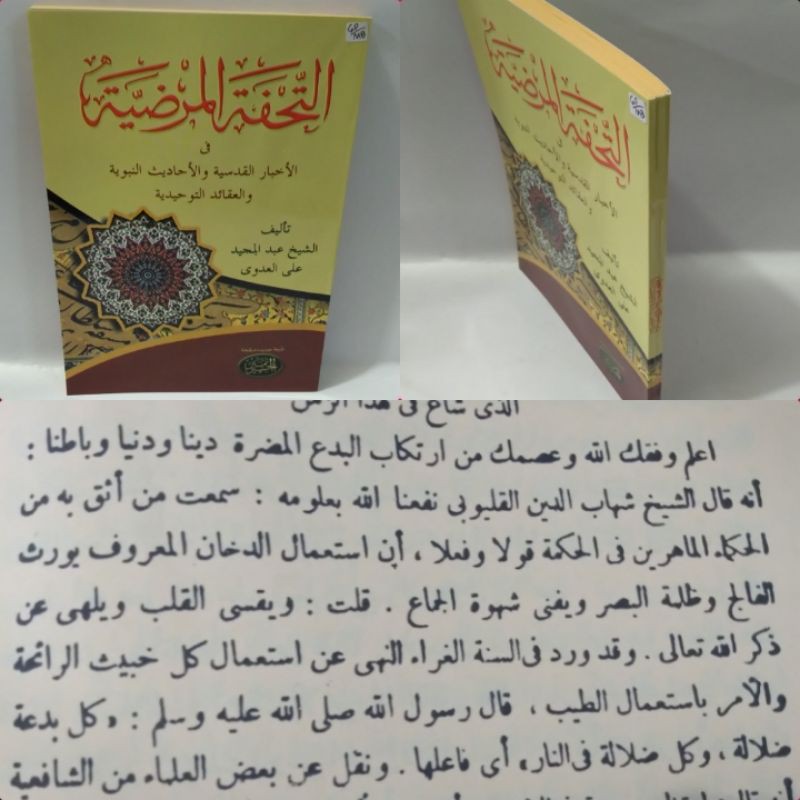 التحفة المرضية
فى
الأخبار القدسية والأحاديث النبوية
والعقائد التوحيدية
تأليف
الشيخ عبد المجيد
على العدوى
التحفة المرضية
فى
الأخبار القدسية والأحاديث النبوية
والعقائد التوحيدية
تأليف
الشيخ عبد المجيد
على العدوى
الذى شاع فى هذا الزمن
اعلم وفقك الله وعصمك من ارتكاب البدع المضرة دينا ودنيا وباطنا :
أنه قال الشيخ شهاب الدين القليوبى نفعنا الله بعلومه : سمعت من أثق به من
الحكماء الماهرين فى الحكمة قولا وفعلا ، أن استعمال الدخان المعروف يورث
الفالج وظلمة البصر ويفنى شهوة الجماع . قلت : ويقسى القلب ويلهى عن
ذكر الله تعالى . وقد ورد فى السنة الغراء النهى عن استعمال كل خبيث الرائحة
والأمر باستعمال الطيب ، قال رسول الله صلى الله عليه وسلم : «كل بدعة
ضلالة ، وكل ضلالة فى النار» أى فاعلها . ونقل عن بعض العلماء من الشافعية